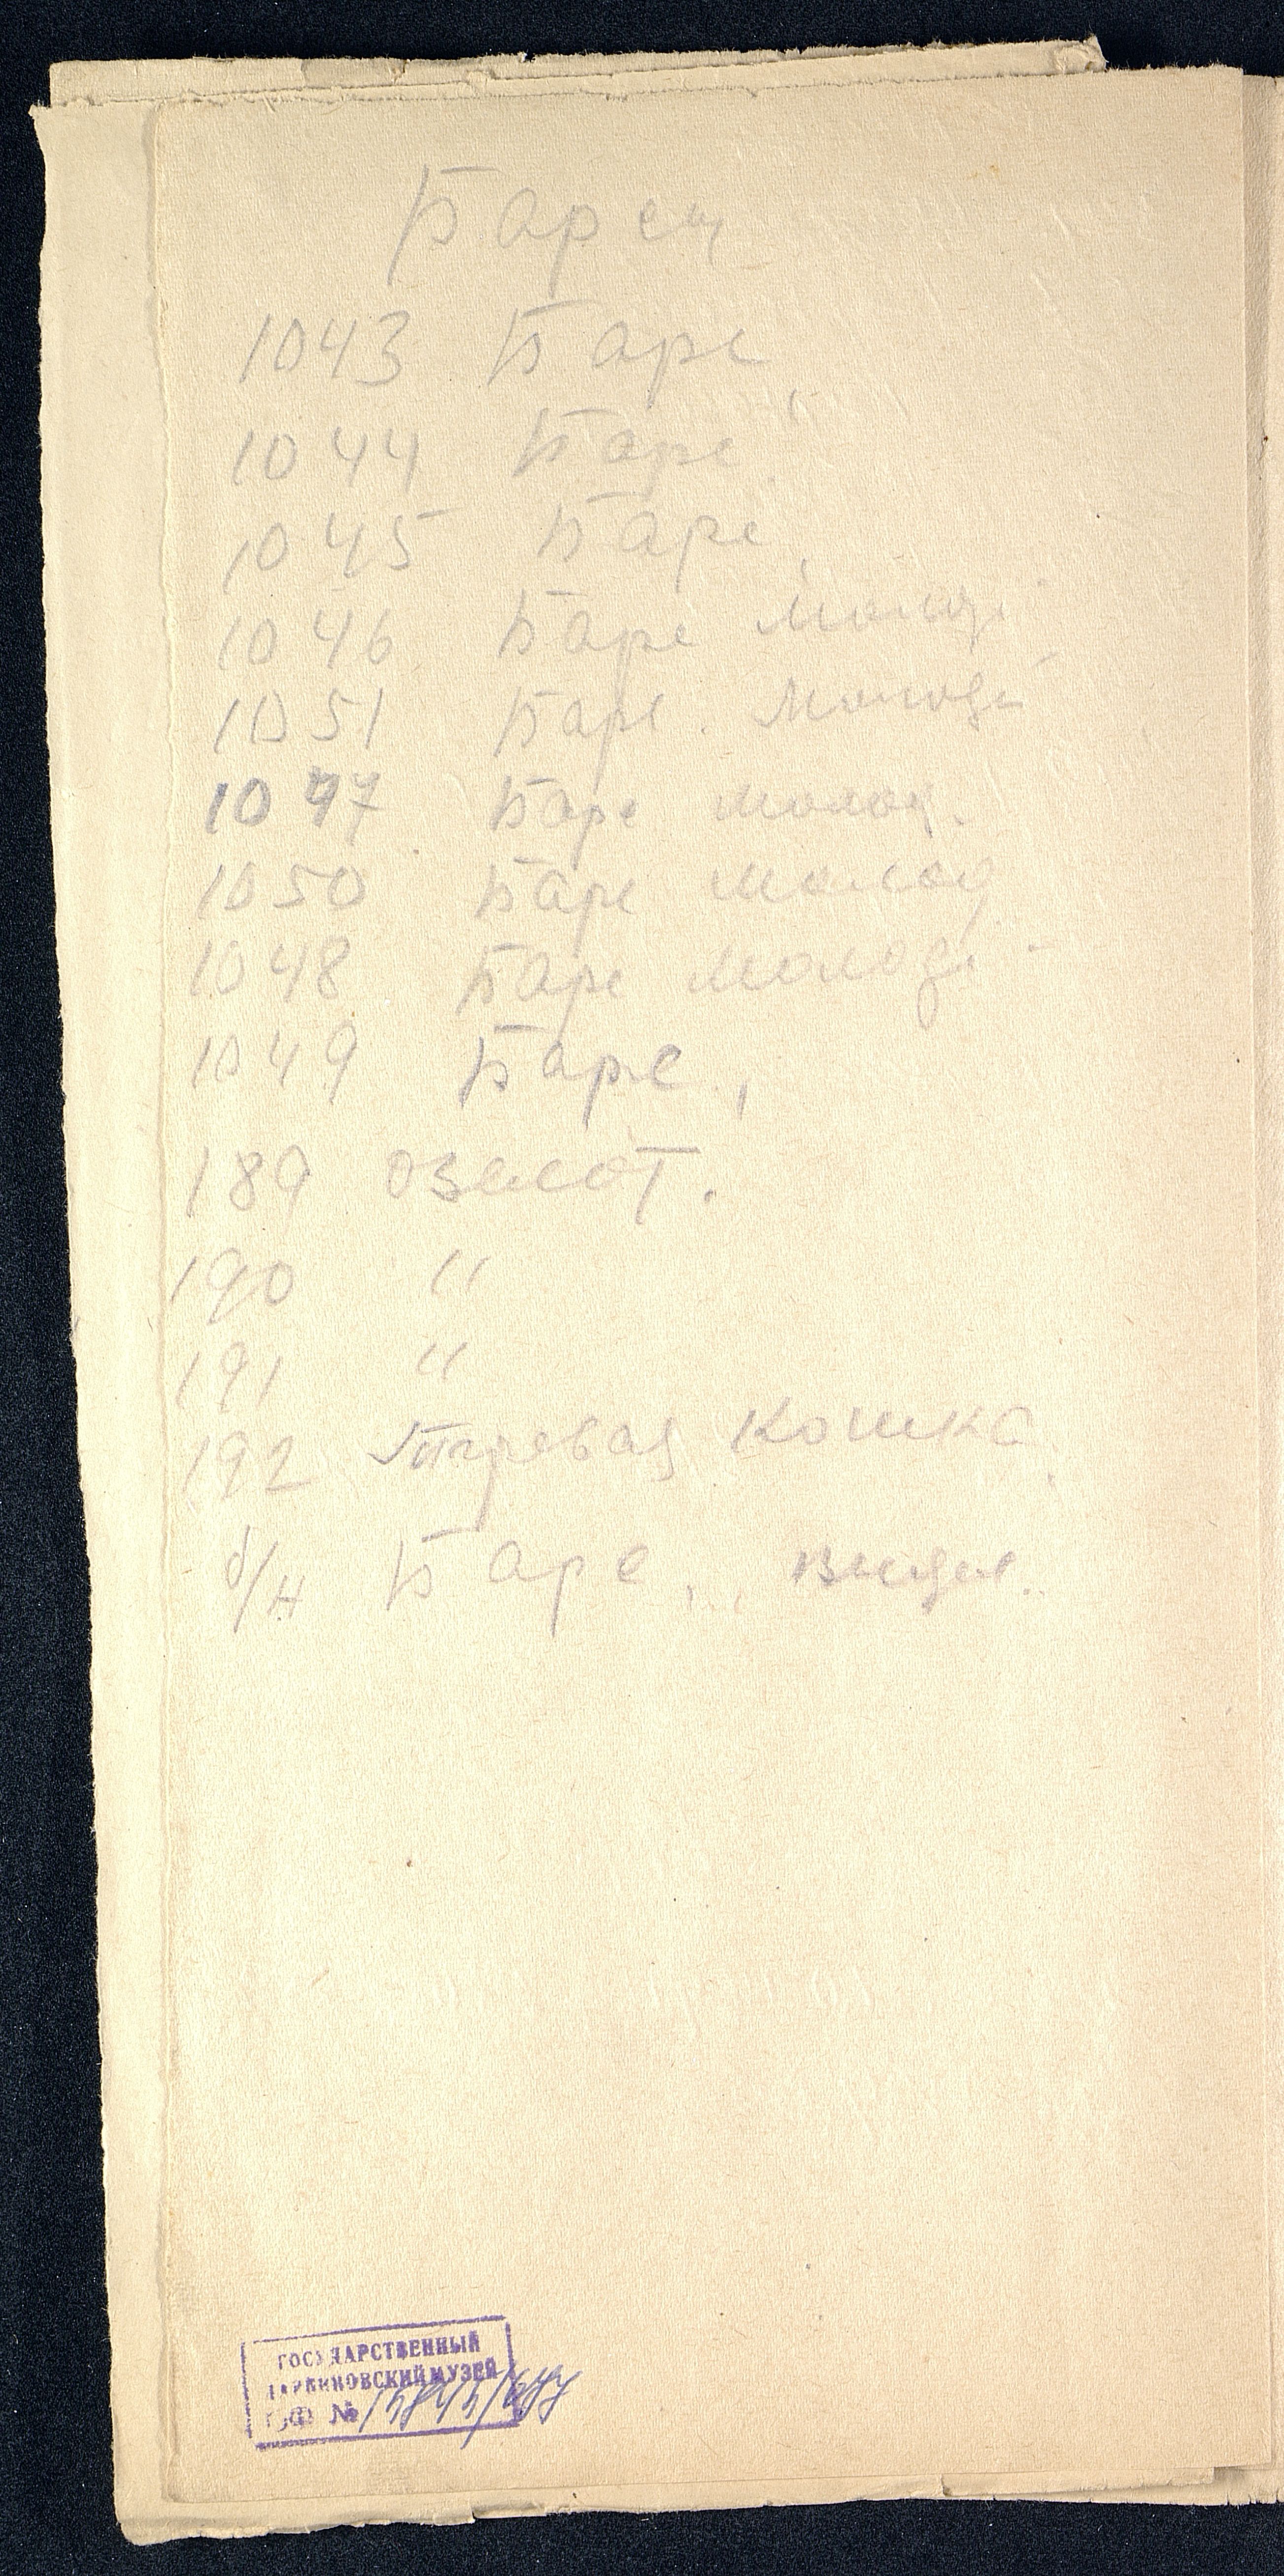 Барсы
1043 Барс
1044 Барс
1045 Барс
1046 Барс молод
1051 Барс. Молодй
1047 Барс молод.
1050 Барс молод
1048 Барс молодй
1049 Барс.,
189 озелот.
190 "
191 "
192 Тигровая кошка
б/н Барс,
ГОСУДАРСТВЕННЫЙ
ДАРВИНОВСКИЙ МУЗЕЙ
ОФ №